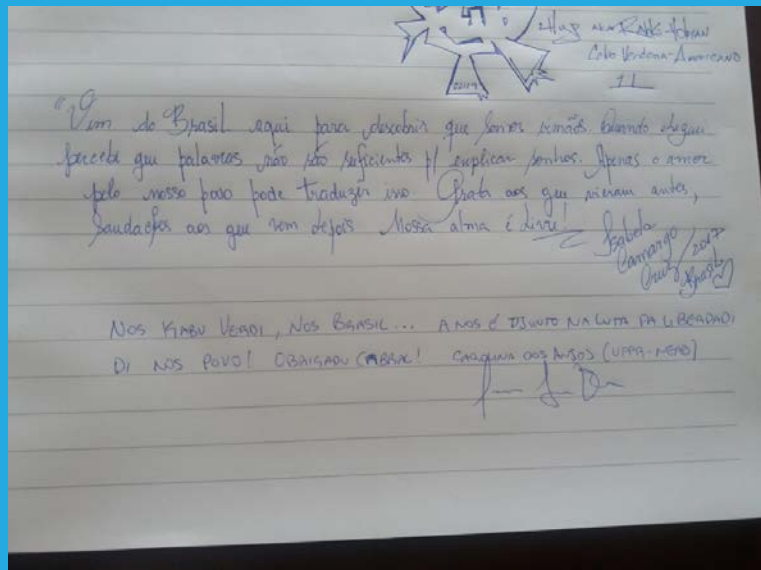 Cabo Verdiana-Americano
"Vim do Brasil aqui para descobrir que somos irmãos. Quando cheguei
percebi que palavras não são suficientes p/ explicar sonhos. Apenas o amor
pelo nosso povo pode traduzir isso. Grata aos que vieram antes,
saudações aos que vem depois. Nossa alma é livre!
Isabela
Camargo
Cruz / 2017
Brasil
NOS KABU VERDI, NOS BRASIL... A NOS É DJUNTO NA LUTA PA LIBERDADI
DI NOS POVO! OBRIGADU CABRAL! CAROLINA DOS ANJOS (UFPR-NEAB)